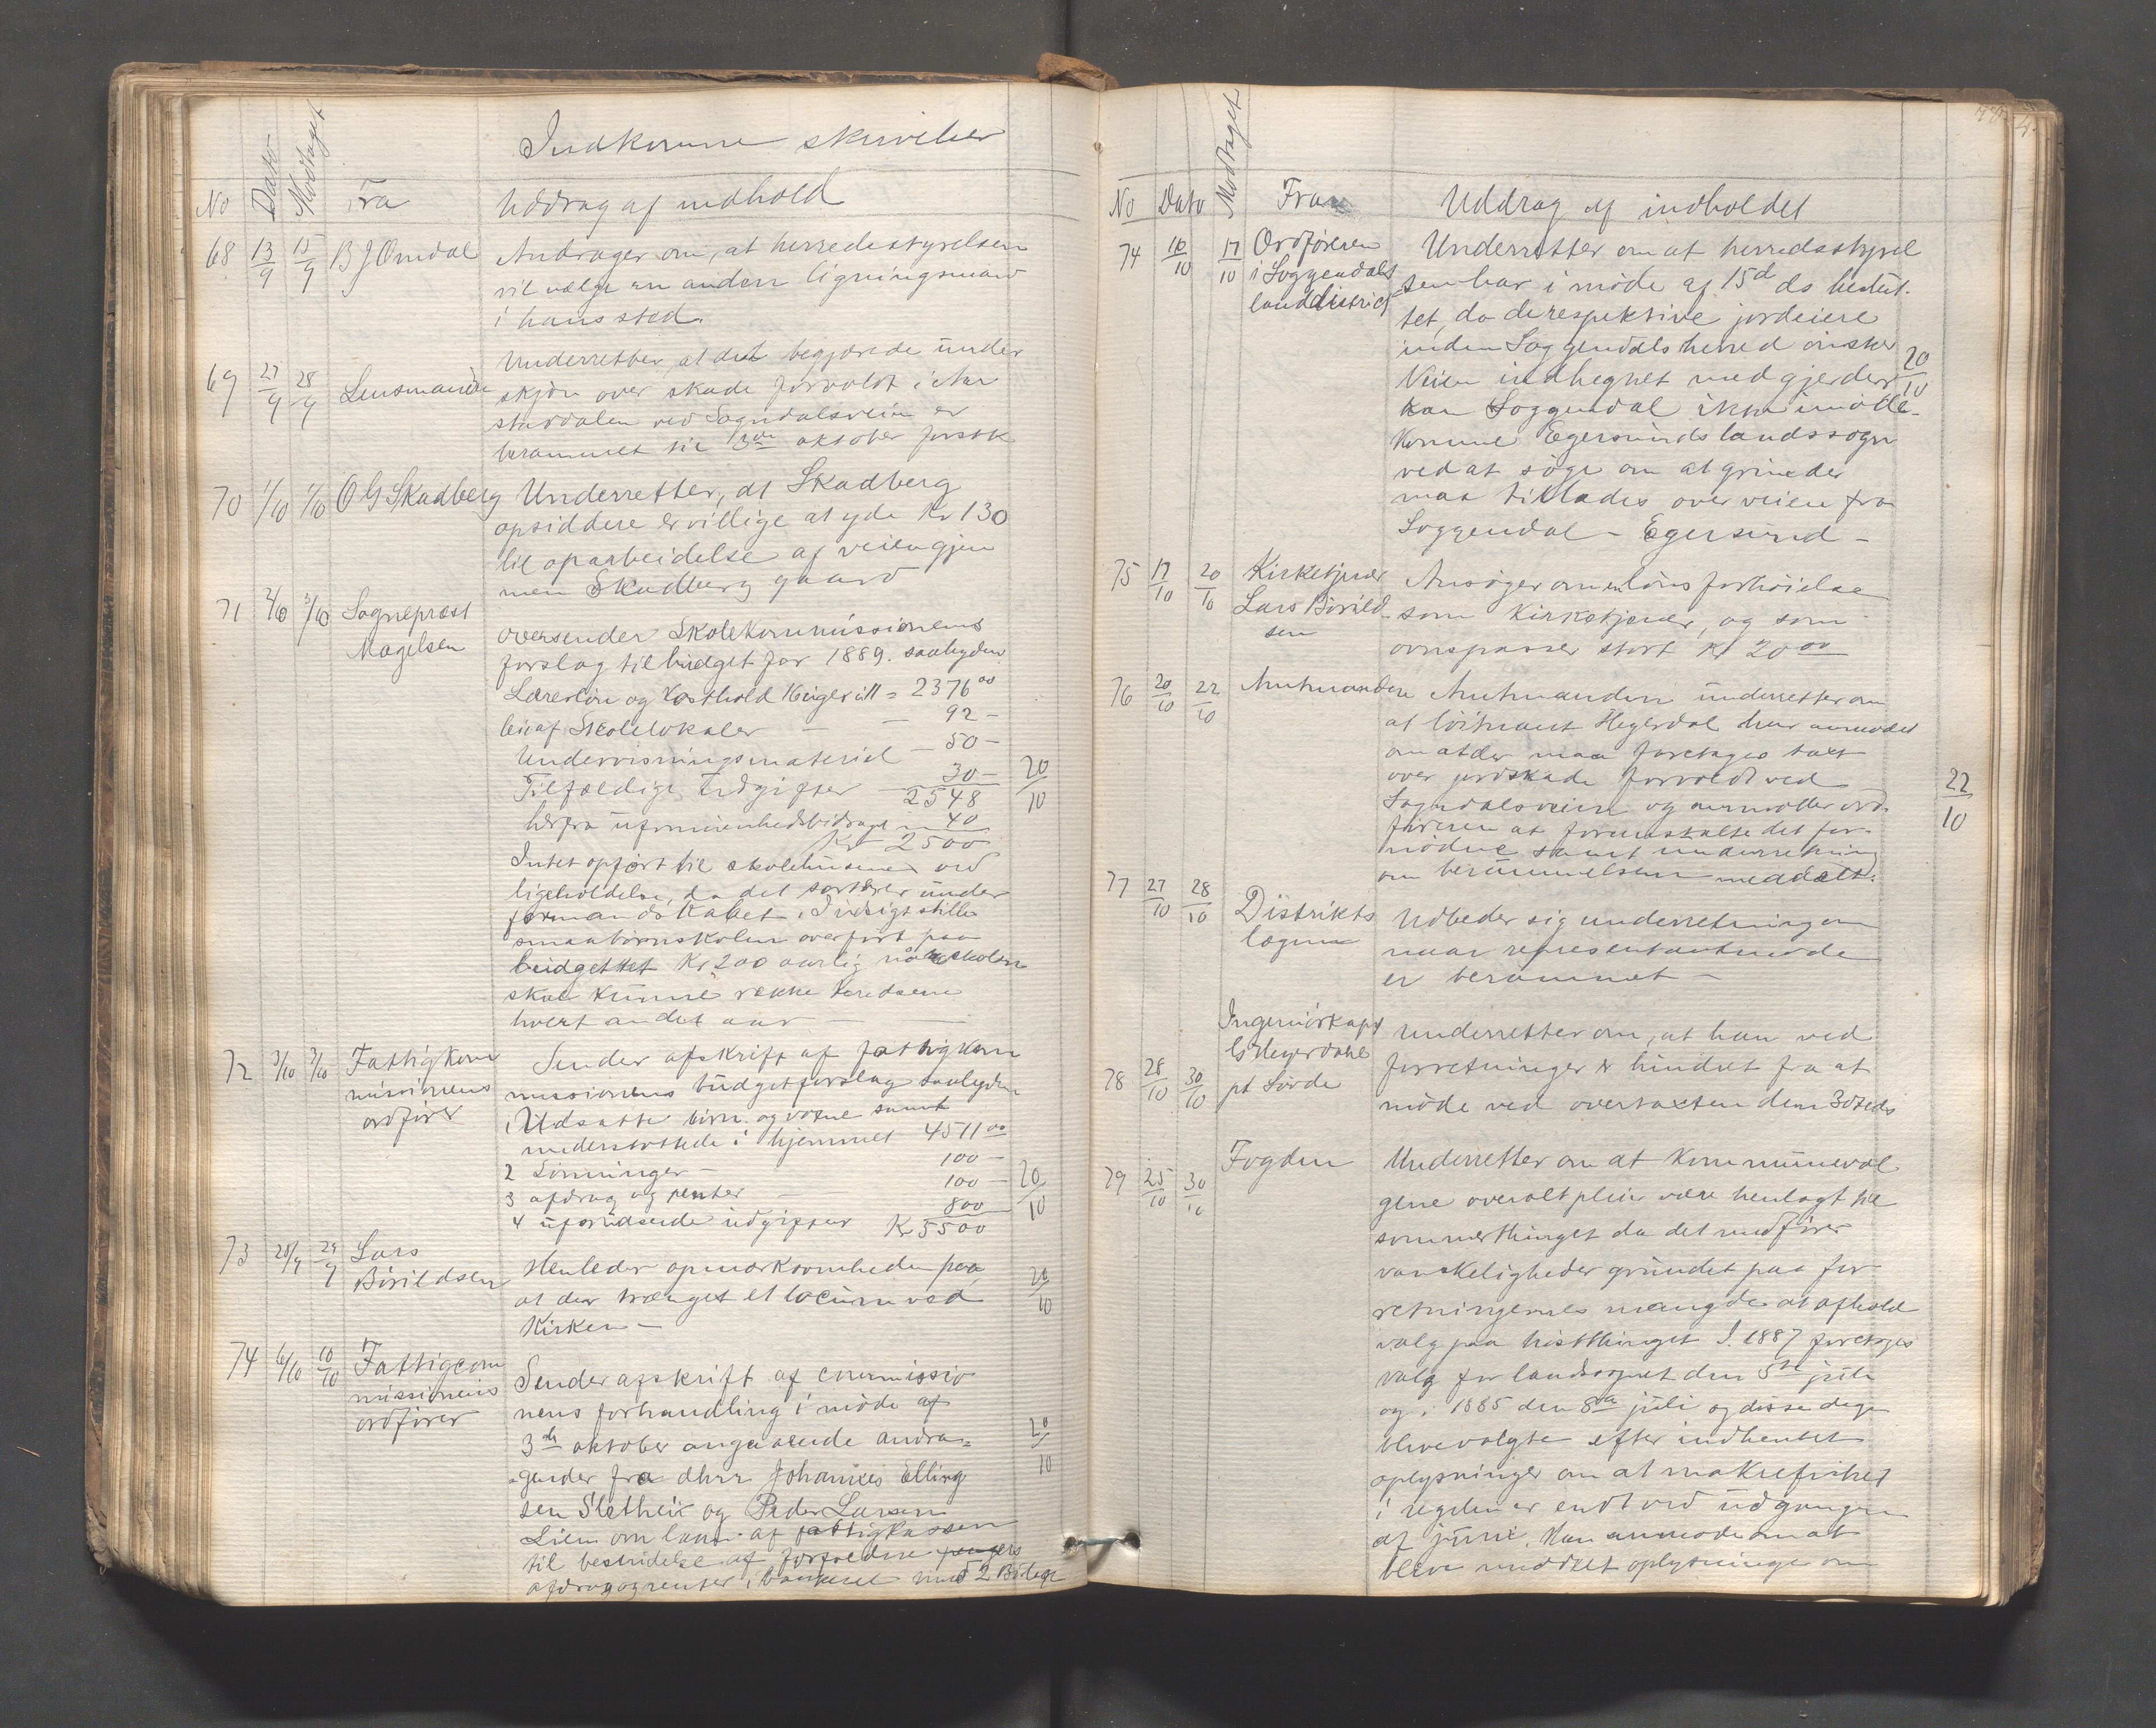 Indkomne skrivelser
No Dato Modtaget Fra Uddrag af indhold
68 13/9 15/9 B J Omdal Andrager om, at herredsstyrelsen
vil vælge en anden ligningsmand
i hans sted.
69 27/9 28/9 Lensmanden Underretter, at det begjærede under
skjøn over skade forvoldt i
stardalen ved Sogndalsveien er
berammet til 3die oktober førstk
70 1/10 1/10 O G Skadberg Underretter, at Skadberg
opsiddere er villige at yde Kr 130
til oparbeidelse af veien gjen
nem Skadberg gaard
71 2/10 3/10 Sognepræst Magelsen
oversender Skolekommissionens
forslag til budget for 1889. saalyden
Lærerløn og kosthold 16 uger à 11 = 2376 00
leie af Skolelokaler — 92 –
Undervisningsmateriel — 50 –
Tilfældige Udgifter — 30 –
2548
herfra uformuenhedsbidraget 40
Kr 2500
20/10
Intet opført til skolehusenes ved
ligeholdelse, da det sorterer under
formandskabet. I udsigt stilles
smaabørnskolen overført paa
budgettet Kr 200 aarlig naar skolen
skal kunne række kredsene
hvert andet aar —
72 3/10 3/10 Fattigkom
missionens
ordfører
Sender afskrift af fattigkom
missionens budgetforslag saalyden
1 Udsatte børn og voxne samt
understøttede i hjemmet 4511 00
2 Lønninger – 100 –
3 afdrag og renter – 100 –
4 uforudseede udgifter 800
Kr 5500
20/10
73 28/9 29/9 Lars
Bòrildsen
Henleder opmærksomheden paa
at der trænges et locum ved
Kirken –
20/10
74 6/10 10/10 Fattigcom
missionens
ordfører
Sender afskrift af commissio
nens forhandling i møde af
3de oktober angaaende andra-
gender fra dhrr Johannes Elling
sen Sletheii og Peder Larsen
Lien om laan af fattigkassen
til bestridelse af forfaldne penges
afdrag og renter i banken med 2
20/10
No Dato Modtaget Fra Uddrag af indholdet
74 16/10 17/10 Ordføreren
i Soggendals
landdistrict
Underretter om at herredsstyrel
sen har i møde af 15d ds beslut-
tet, da de respektive jordeiere
inden Soggendals herred ønsker
Veien indhegnet med gjerder
kan Soggendal ikke imøde-
komme Egersunds landssogn
ved at søge om at grinder
maa tillades over veien fra
Soggendal – Egersund –
20/10
75 17/10 20/10 Kirketjener
Lars Bòrild
sen
Ansøger om en lønsforhøielse
som kirketjener, og som
ovnspasser stort Kr 20 00
76 20/10 22/10 Amtmanden Amtmanden underretter om
at løitnant Heyerdal har anmodet
om at der maa foretages taxt
over jordskade forvoldt ved
Sogndalsveien og anmoder ord-
føreren at foranstalte det for-
nødne samt underretning
om berammelsen meddelt.
22/10
77 27/10 28/10 Distrikts
lægen
Udbeder sig underretning om
naar representantmøde
er berammet –
78 28/10 30/10 Ingeniørkapt
Heyerdahl
pt Sirde
Underretter om, at han ved
forretninger er hindret fra at
møde ved overtaxten den 30te ds
79 25/10 30/10 Fogden Underretter om at Kommuneval
gene overalt pleier være henlagt til
sommerthinget da det medfører
vanskeligheder grundet paa for
retningernes mængde at afholde
valg paa høstthinget I 1887 foretoges
valg for landsognet den 5te juli
og i 1885 den 8de juli og disse dage
bleve valgte efter indhentet
oplysninger om at makrelfisket
i regelen er endt ved udgangen
af juni. Han anmoder om at
blive meddelt oplysninger om